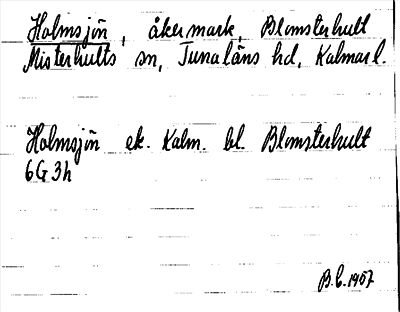 Holmsjön, åkermark, Blomsterhult
Misterhults sn, Tunaläns hd, Kalmar l.
Holmsjön ek. Kalm. bl. Blomsterhult
6G3h
B.C. 1957